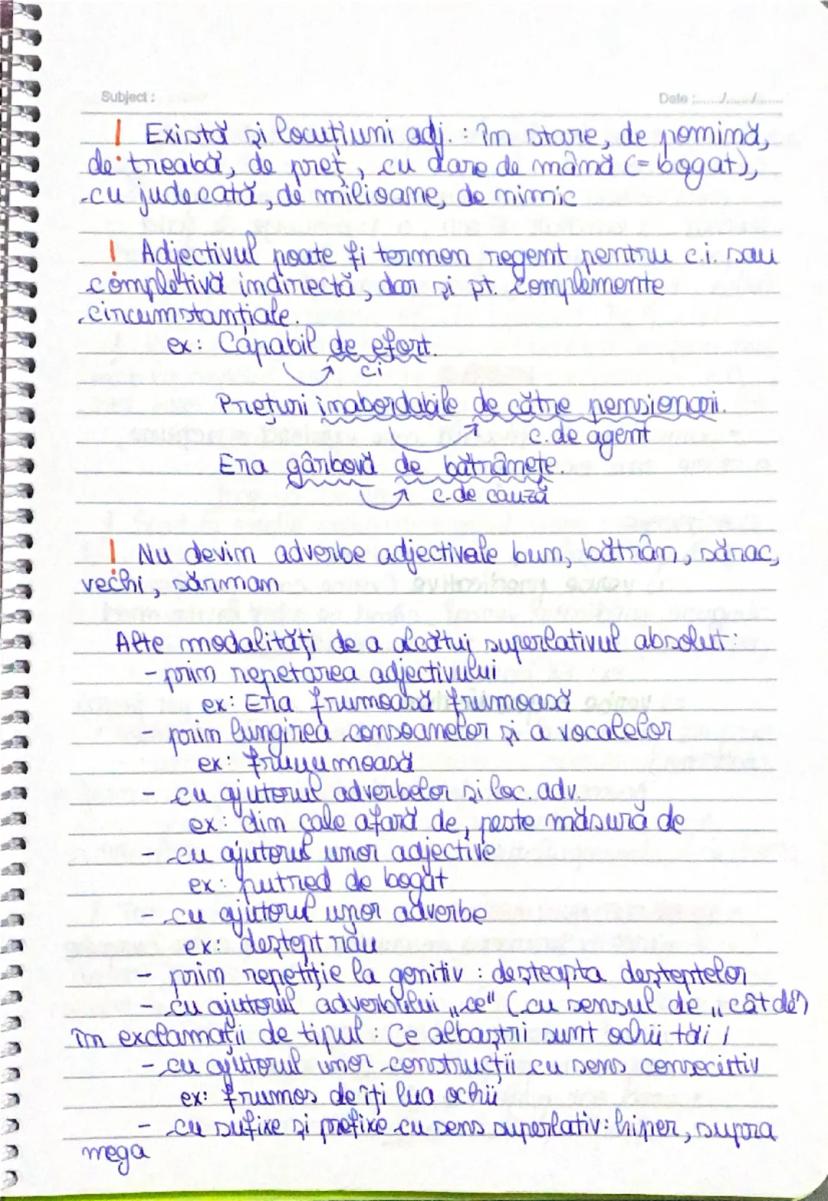 Subject :
Date :....../....../......
! Există și locuțiuni adj. : în stare, de pomină,
de treabă, de preț, cu dare de mână (= bogat),
cu judecată, de milioane, de nimic
! Adjectivul poate fi termen regent pentru c.i. sau
completivă indirectă, dar și pt. complemente
circumstanțiale.
ex: Capabil de efort.
ci
Prețuri inabordabile de către pensionari.
c. de agent
Era gârbovă de bătrânețe.
c. de cauză
! Nu devin adverbe adjectivele bun, bătrân, sărac,
vechi, sărman
Alte modalități de a alcătui superlativul absolut:
- prin repetarea adjectivului
ex: Era frumoasă frumoasă
- prin lungirea consoanelor și a vocalelor
ex: fruuumoasă
- cu ajutorul adverbelor și loc. adv.
ex: din cale afară de, peste măsură de
- cu ajutorul unor adjective
ex: putred de bogat
- cu ajutorul unor adverbe
ex: deștept rău
- prin repetiție la genitiv : deșteapta deșteptelor
- cu ajutorul adverbului „ce" (cu sensul de „cât de")
în exclamații de tipul : Ce albaștri sunt ochii tăi !
- cu ajutorul unor construcții cu sens consecutiv
ex: frumos de îți lua ochii
- cu sufixe și prefixe cu sens superlativ: hiper, supra
mega